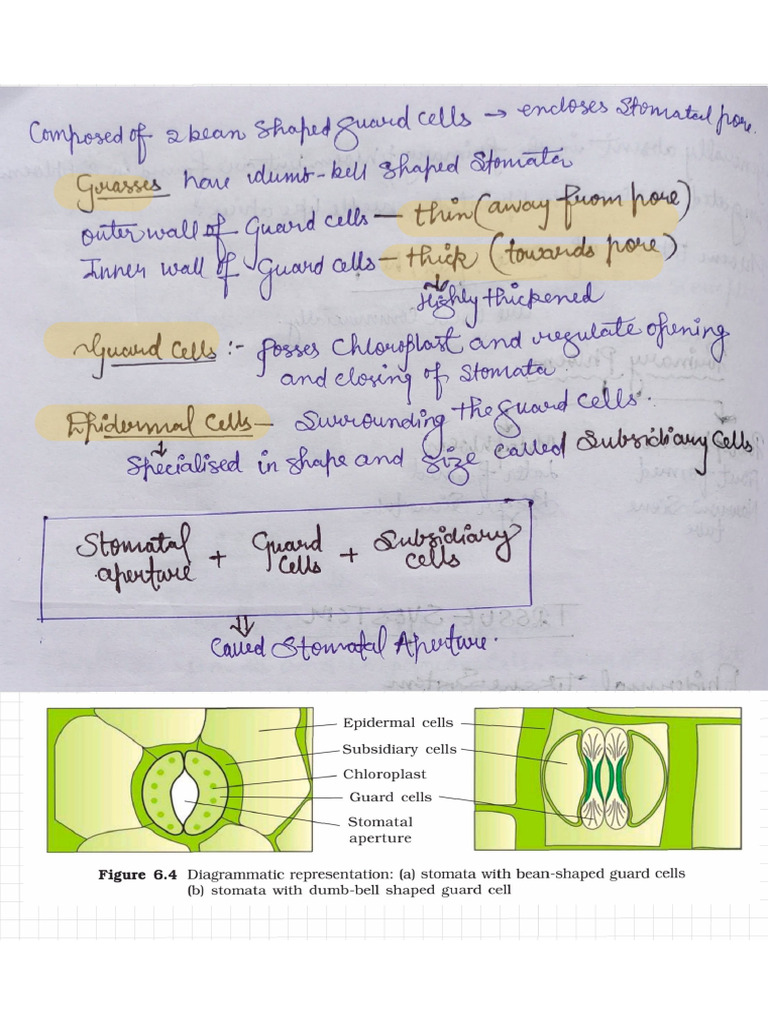 Composed of 2 bean shaped guard cells → encloses stomatal pore.
Grasses have dumb-bell shaped stomata
outer wall of guard cells — thin (away from pore)
Inner wall of guard cells — thick (towards pore)
Highly thickened
Guard cells :- Posses chloroplast and regulate opening
and closing of stomata
Epidermal cells — Surrounding the guard cells.
Specialised in shape and size called Subsidiary Cells
Stomatal aperture + Guard cells + Subsidiary cells
Called Stomatal Aperture.
Epidermal cells
Subsidiary cells
Chloroplast
Guard cells
Stomatal
aperture
Figure 6.4 Diagrammatic representation: (a) stomata with bean-shaped guard cells
(b) stomata with dumb-bell shaped guard cell